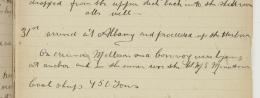 dropped from the upper deck
after well
31st arrived at Albany and proceeded up the Harbour
On arriving Melbourne and convoy was lying
at anchor and in the same was the HMS Minotaur
Coal ships 450 Tons